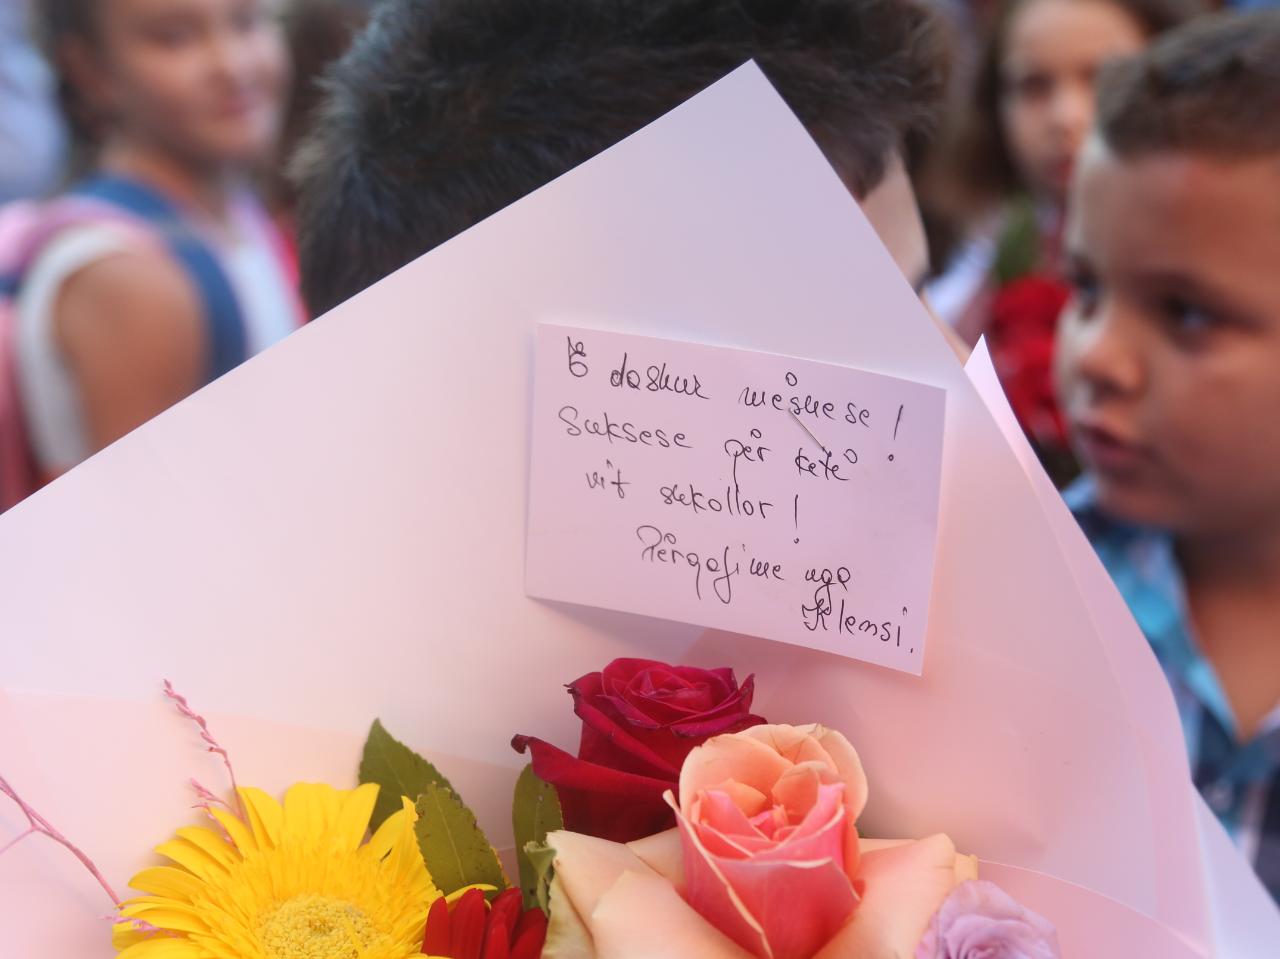 E dashur mësuese!
Suksese për këtë
vit shkollor!
Përqafime nga
Klensi.